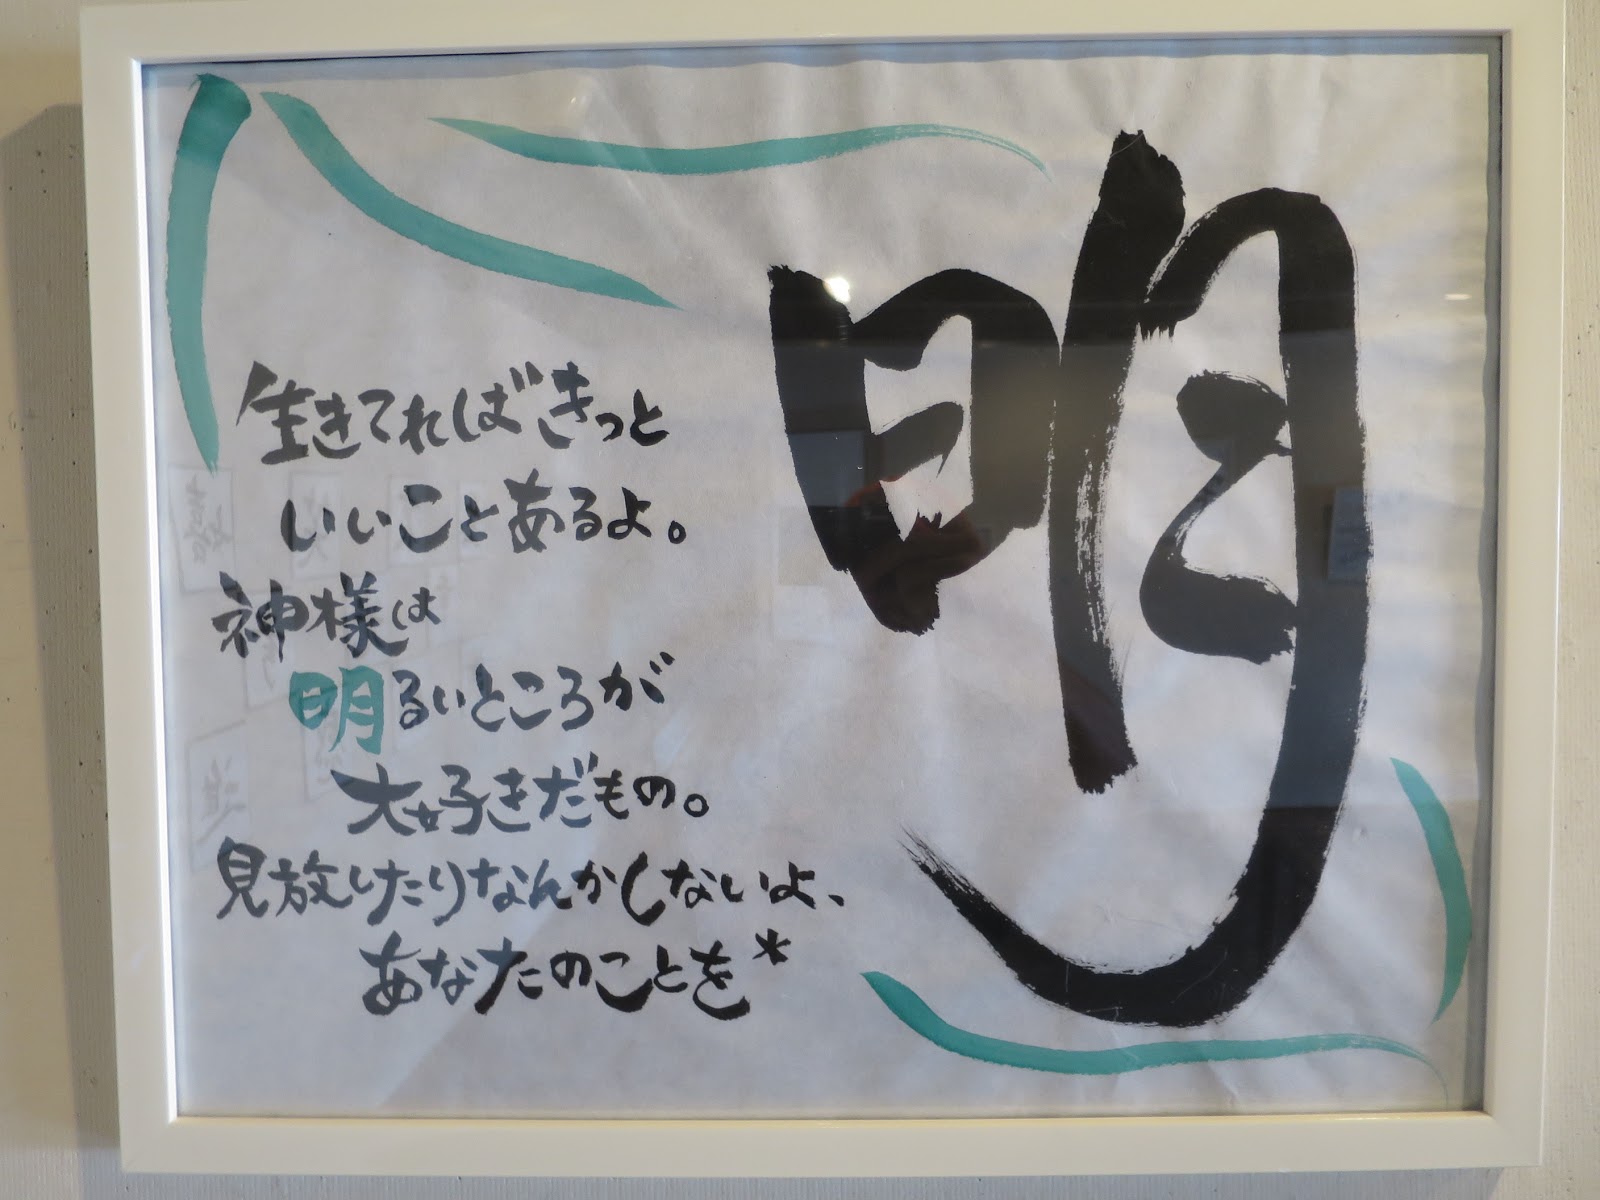 明
生きてればきっと
いいことあるよ。
神様は
明るいところが
大好きだもの。
見放したりなんかしないよ、
あなたのことを*